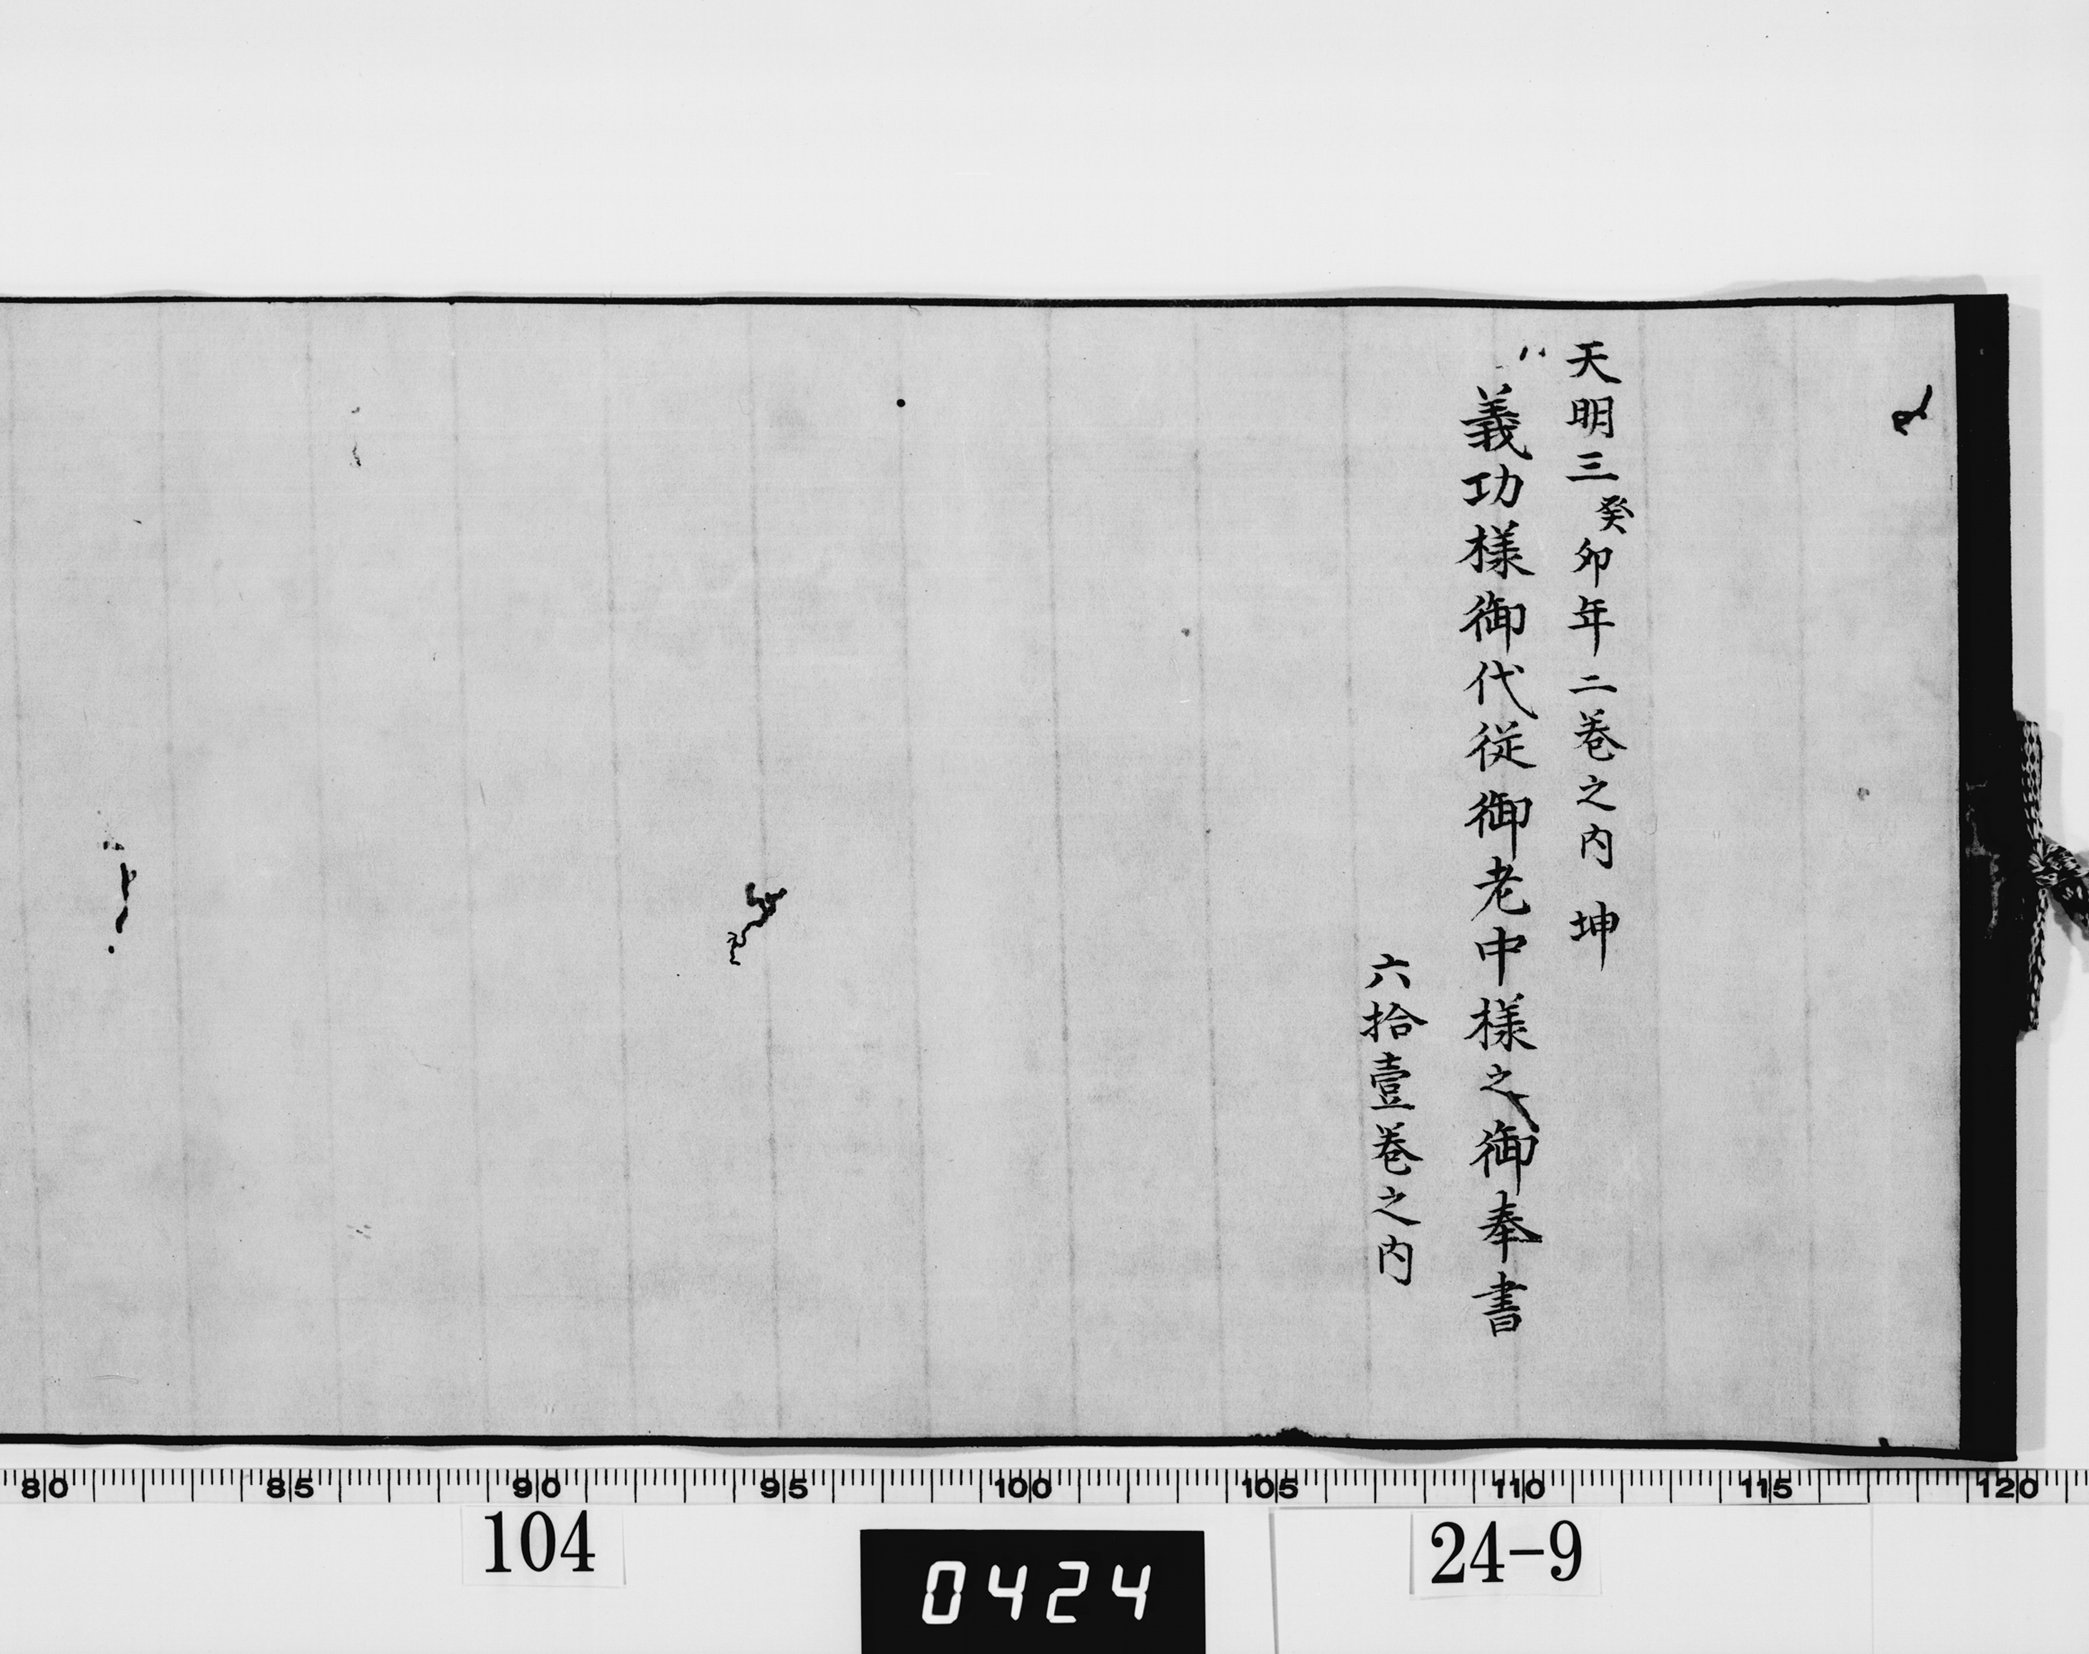 天明三癸卯年二巻之内 坤
義功様御代従御老中様之御奉書
六拾壹巻之内
80 85 90 95 100 105 110 115 120
104
0424
24-9